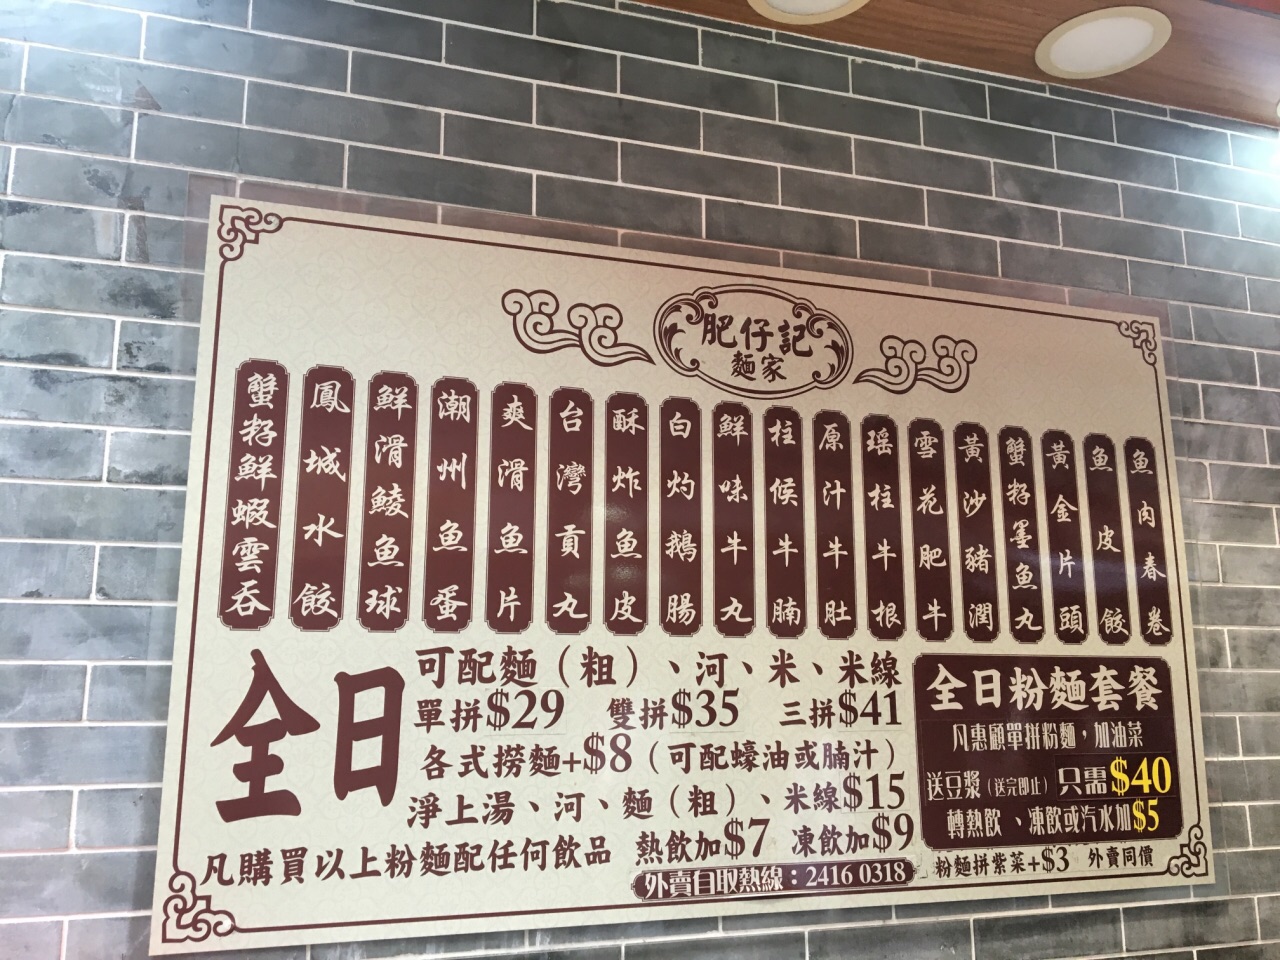 肥仔記
麵家
蟹籽鮮蝦雲吞
鳳城水餃
鮮滑鯪魚球
潮州魚蛋
爽滑魚片
台灣貢丸
酥炸魚皮
白灼鵝腸
鮮味牛丸
柱候牛腩
原汁牛肚
瑤柱牛根
雪花肥牛
黃沙豬潤
蟹籽墨魚丸
黃金片頭
魚皮餃
魚肉春卷
全日
可配麵（粗）、河、米、米線
單拼$29 雙拼$35 三拼$41
各式撈麵+$8（可配蠔油或腩汁）
淨上湯、河、麵（粗）、米線$15
凡購買以上粉麵配任何飲品 熱飲加$7 凍飲加$9
外賣自取熱線：2416 0318
全日粉麵套餐
凡惠顧單拼粉麵，加油菜
送豆漿（送完即止）只需$40
轉熱飲、凍飲或汽水加$5
粉麵拼紫菜+$3 外賣同價